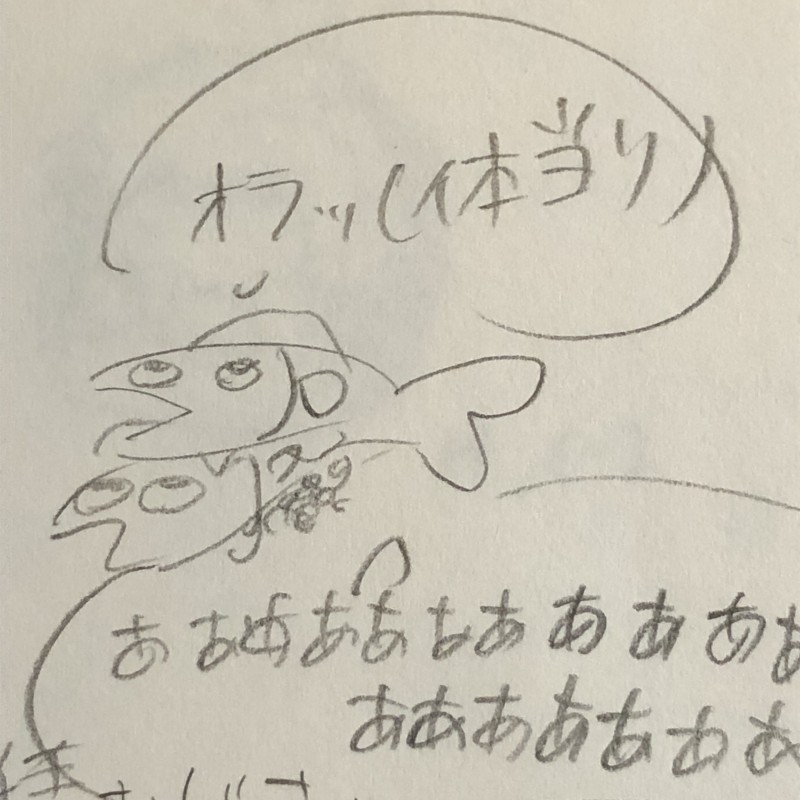 オラッ(体当り)
あああああああああああ
ああああああああ